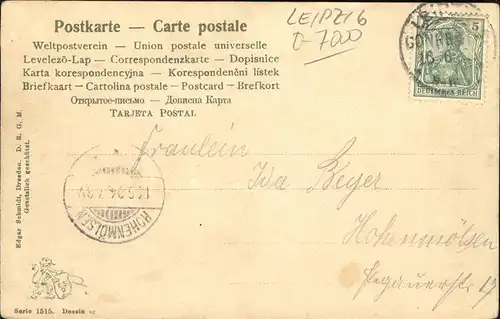 Postkarte — Carte postale
LEIPZIG
D-7000
Weltpostverein — Union postale universelle
Levelező-Lap — Correspondenzkarte — Dopisnice
Karta korespondencyjna — Korespondenční lístek
Briefkaart — Cartolina postale — Postcard — Brefkort
Открытое-письмо — Дописна Карта
TARJETA POSTAL
5
DEUTSCHES REICH
Fräulein
Ida Beyer
Hohenmölsen
Pegauerstr. 19
HOHENMÖLSEN
Edgar Schmidt, Dresden. D. R. G. M.
Gesetzlich geschützt.
Serie 1515. Dessin